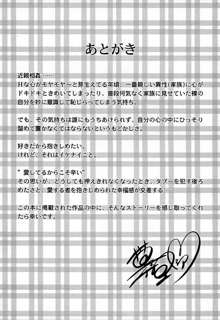 あとがき
近親相姦――
Hな心がモヤモヤ～と芽生えてる年頃、一番親しい異性(家族)に心が
ドキドキときめいてしまったり、普段何気なく家族に見せていた裸の
自分を妙に意識して恥じらってしまう気持ち。
でも、その気持ちは誰にもうちあけられず、自分の心の中にひっそり
留めて置かなくてはならないというもどかしさ。
好きだから抱きしめたい。
けれど、それはイケナイこと。
"愛してるからこそ辛い"
その思いが、どうしても押えきれなくなったとき、タブーを犯す後ろ
めたさと、愛する者を抱きしめられた幸福感が交差する――
この本に掲載された作品の中に、そんなストーリーを感じ取ってくれ
たら幸いです。